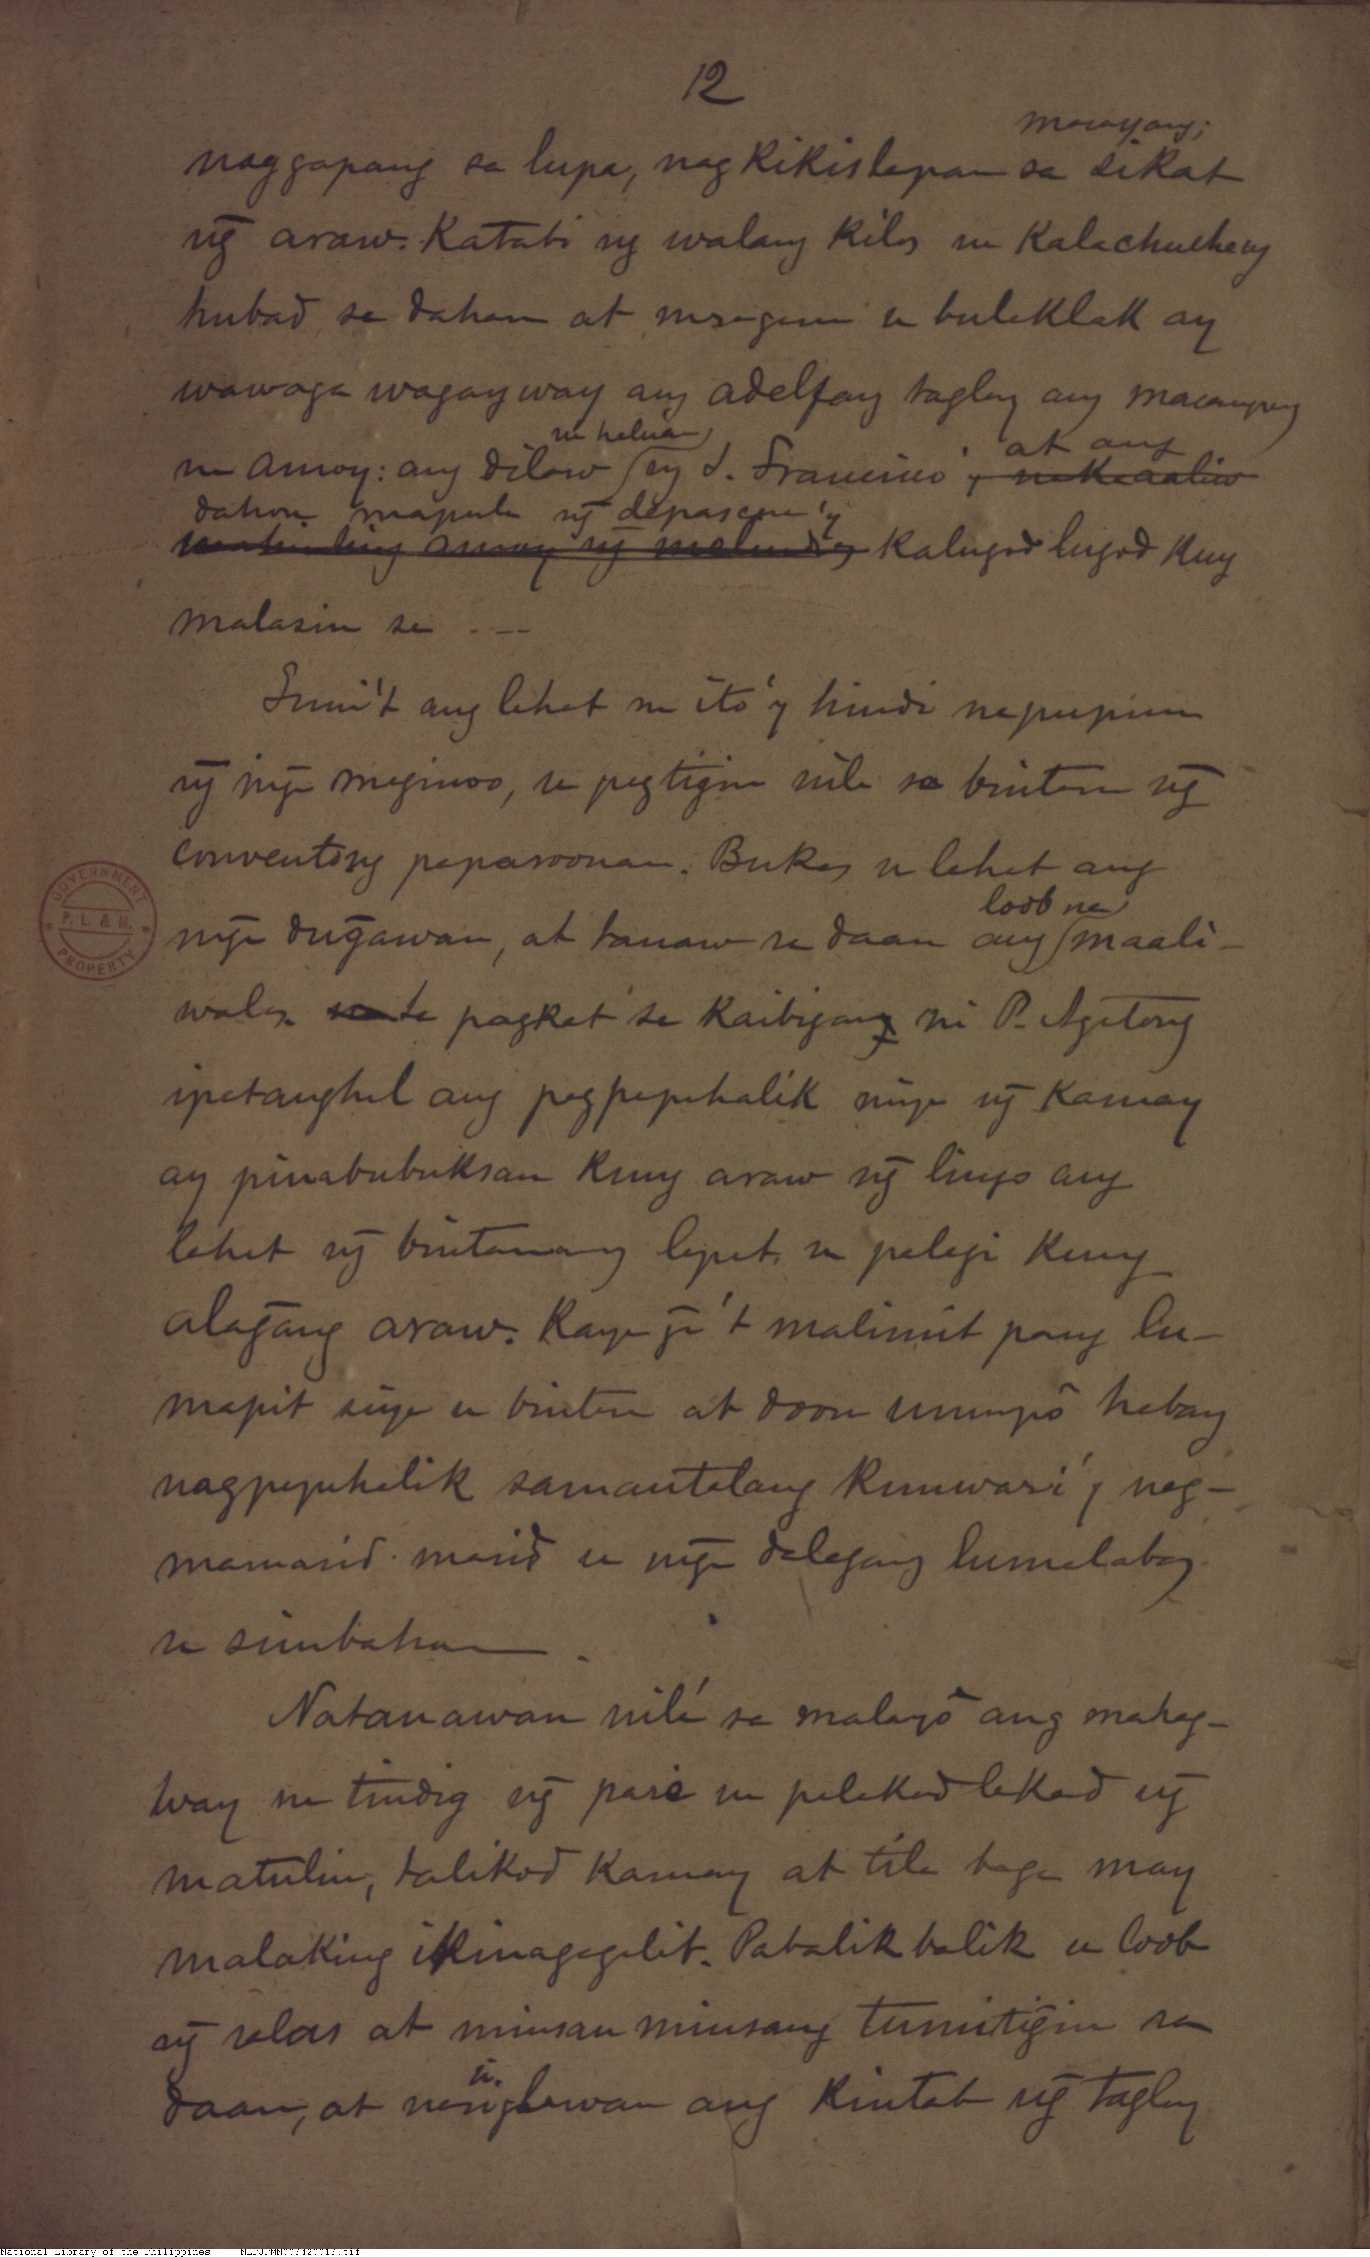 12
masayang;
naggapang sa lupa, nag kikislapan sa sikat
ng̃ araw. Katabi ng walang kilos na kalachucheng
hubad sa dahon at sa bulaklak ay
wawaga wagayway ang adelfang taglay ang
na halua
na amoy: ang dilaw ng S. Francisco'y at ang
dahong mapula ng̃ depascua'y
amoy ng̃ kalugod lugod kung
malasin sa - --
Suni't ang lahat na ito'y hindi napupuna
ng̃ mg̃a maginoo, sa pagtig̃in nila sa bintana ng̃
conventong paparoonan. Bukas na lahat ang
loob na
mg̃a durg̃awan, at tanaw sa daan ang maali-
walas sala pagkat sa kaibigang ni P. Agatong
ipatanghal ang pagpapahalik niya ng̃ kamay
ay pinabubuksan kung araw ng̃ lingo ang
lahat ng̃ bintanang lapat na palagi kung
alag̃ang araw. Kaya g̃a't malimit pang lu-
mapit siya sa bintana at doon umupô habang
nagpapahalik samantalang kunwari'y nag-
mamasid masid sa mg̃a dalagang lumalabas
sa simbahan.
Natanawan nilá sa malayô ang mahag-
way na tindig ng̃ pare na palakad lakad ng̃
matulin, talikod kamay at tila baga may
malaking ikinagagalit. Pabalik balik sa loob
ng̃ salas at minsan minsang tumitig̃in sa
daan, at ang kintab ng̃ taglay
GOVERNMENT
P. L. & M.
PROPERTY
National Library of the Philippines